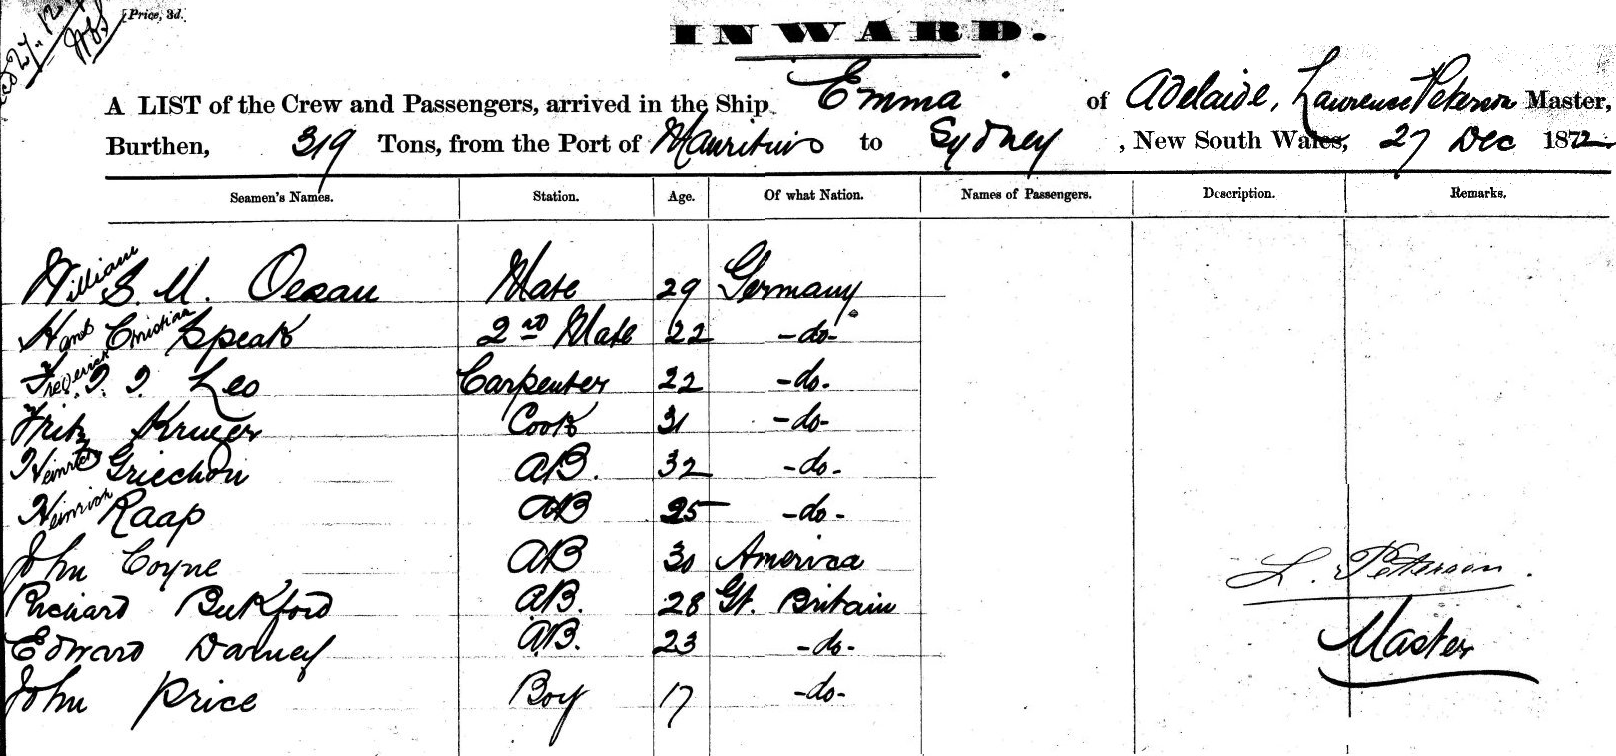 [Price, 3d.
INWARD.
A LIST of the Crew and Passengers, arrived in the Ship Emma of Adelaide, Lawrence Peterson Master,
Burthen, 319 Tons, from the Port of Mauritius to Sydney, New South Wales, 27 Dec 1872
Seamen's Names. Station. Age. Of what Nation. Names of Passengers. Description. Remarks.
William S. M. Oesau Mate 29 Germany
Hans Christian Speak 2nd Mate 22 -do-
Frederick Leo Carpenter 22 -do-
Fritz Kruger Cook 31 -do-
Heinrich Griechon AB. 32 -do-
Heinrich Raap AB 25 -do-
John Coyne AB 30 America
L. Petterson.
Richard Bukford AB. 28 Gt. Britain
Master
Edward Darney AB. 23 -do-
John Price Boy 17 -do-